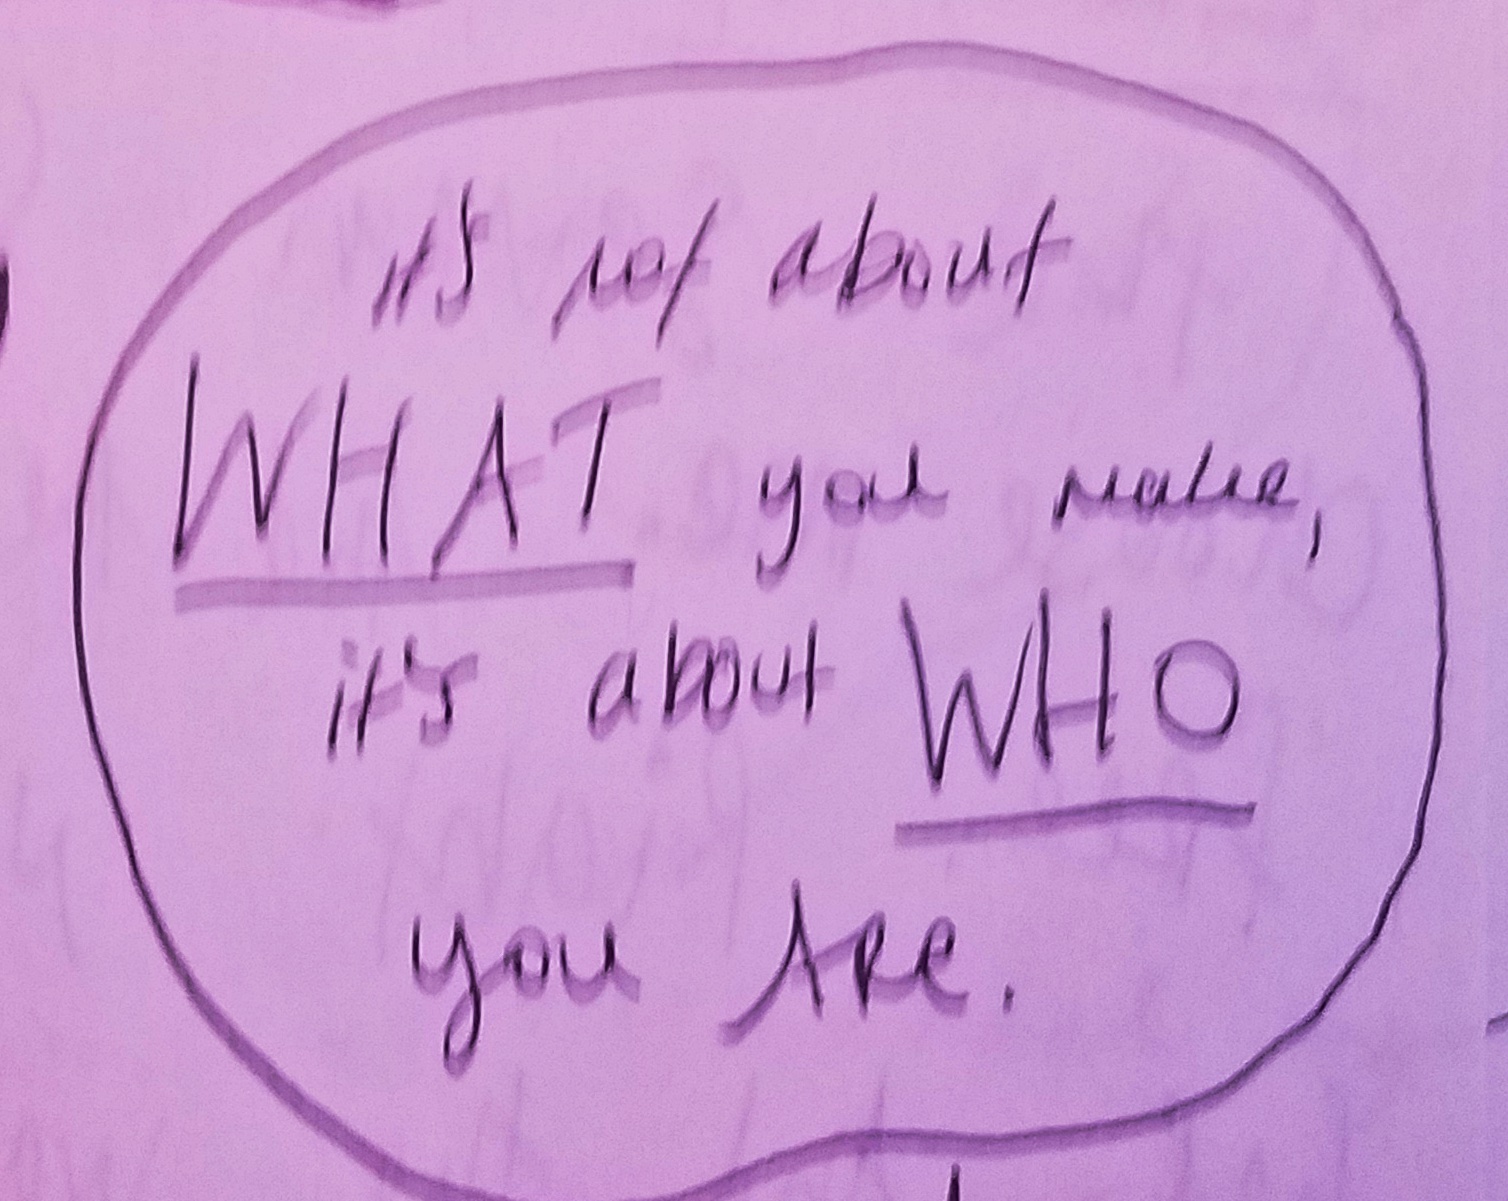 it's not about
WHAT you make,
it's about WHO
you ARe.